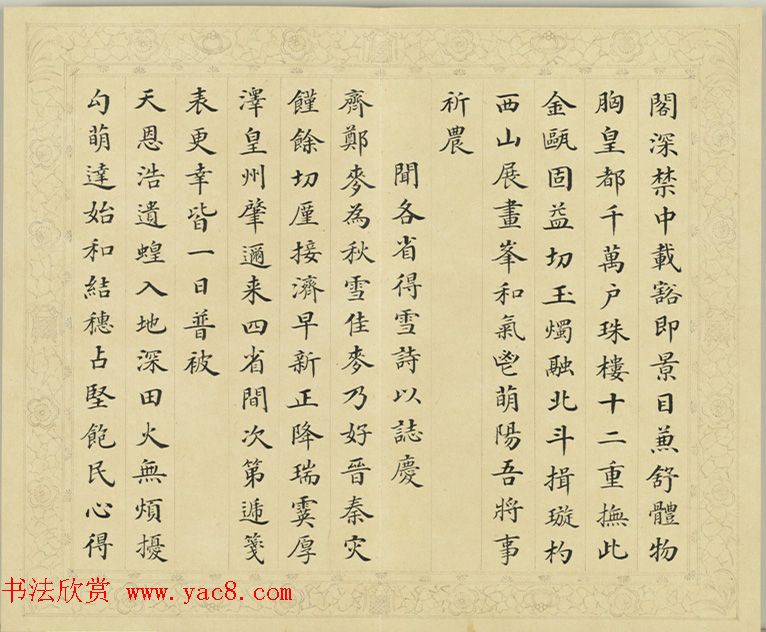 閣深禁中載豁即景目蒐舒體物
胸皇都千萬戶珠樓十二重撫此
金甌固益切玉燭融北斗揖璇杓
西山展畫峯和氣鬯萌陽吾將事
祈農
聞各省得雪詩以誌慶
齊鄭麥為秋雪佳麥乃好晉秦灾
饉餘切廑接濟早新正降瑞霙厚
澤皇州肇邇来四省間次第遞箋
表更幸皆一日普被
天恩浩遺蝗入地深田火無煩擾
勾萌達始和結穗占堅飽民心得
书法欣赏 www.yac8.com